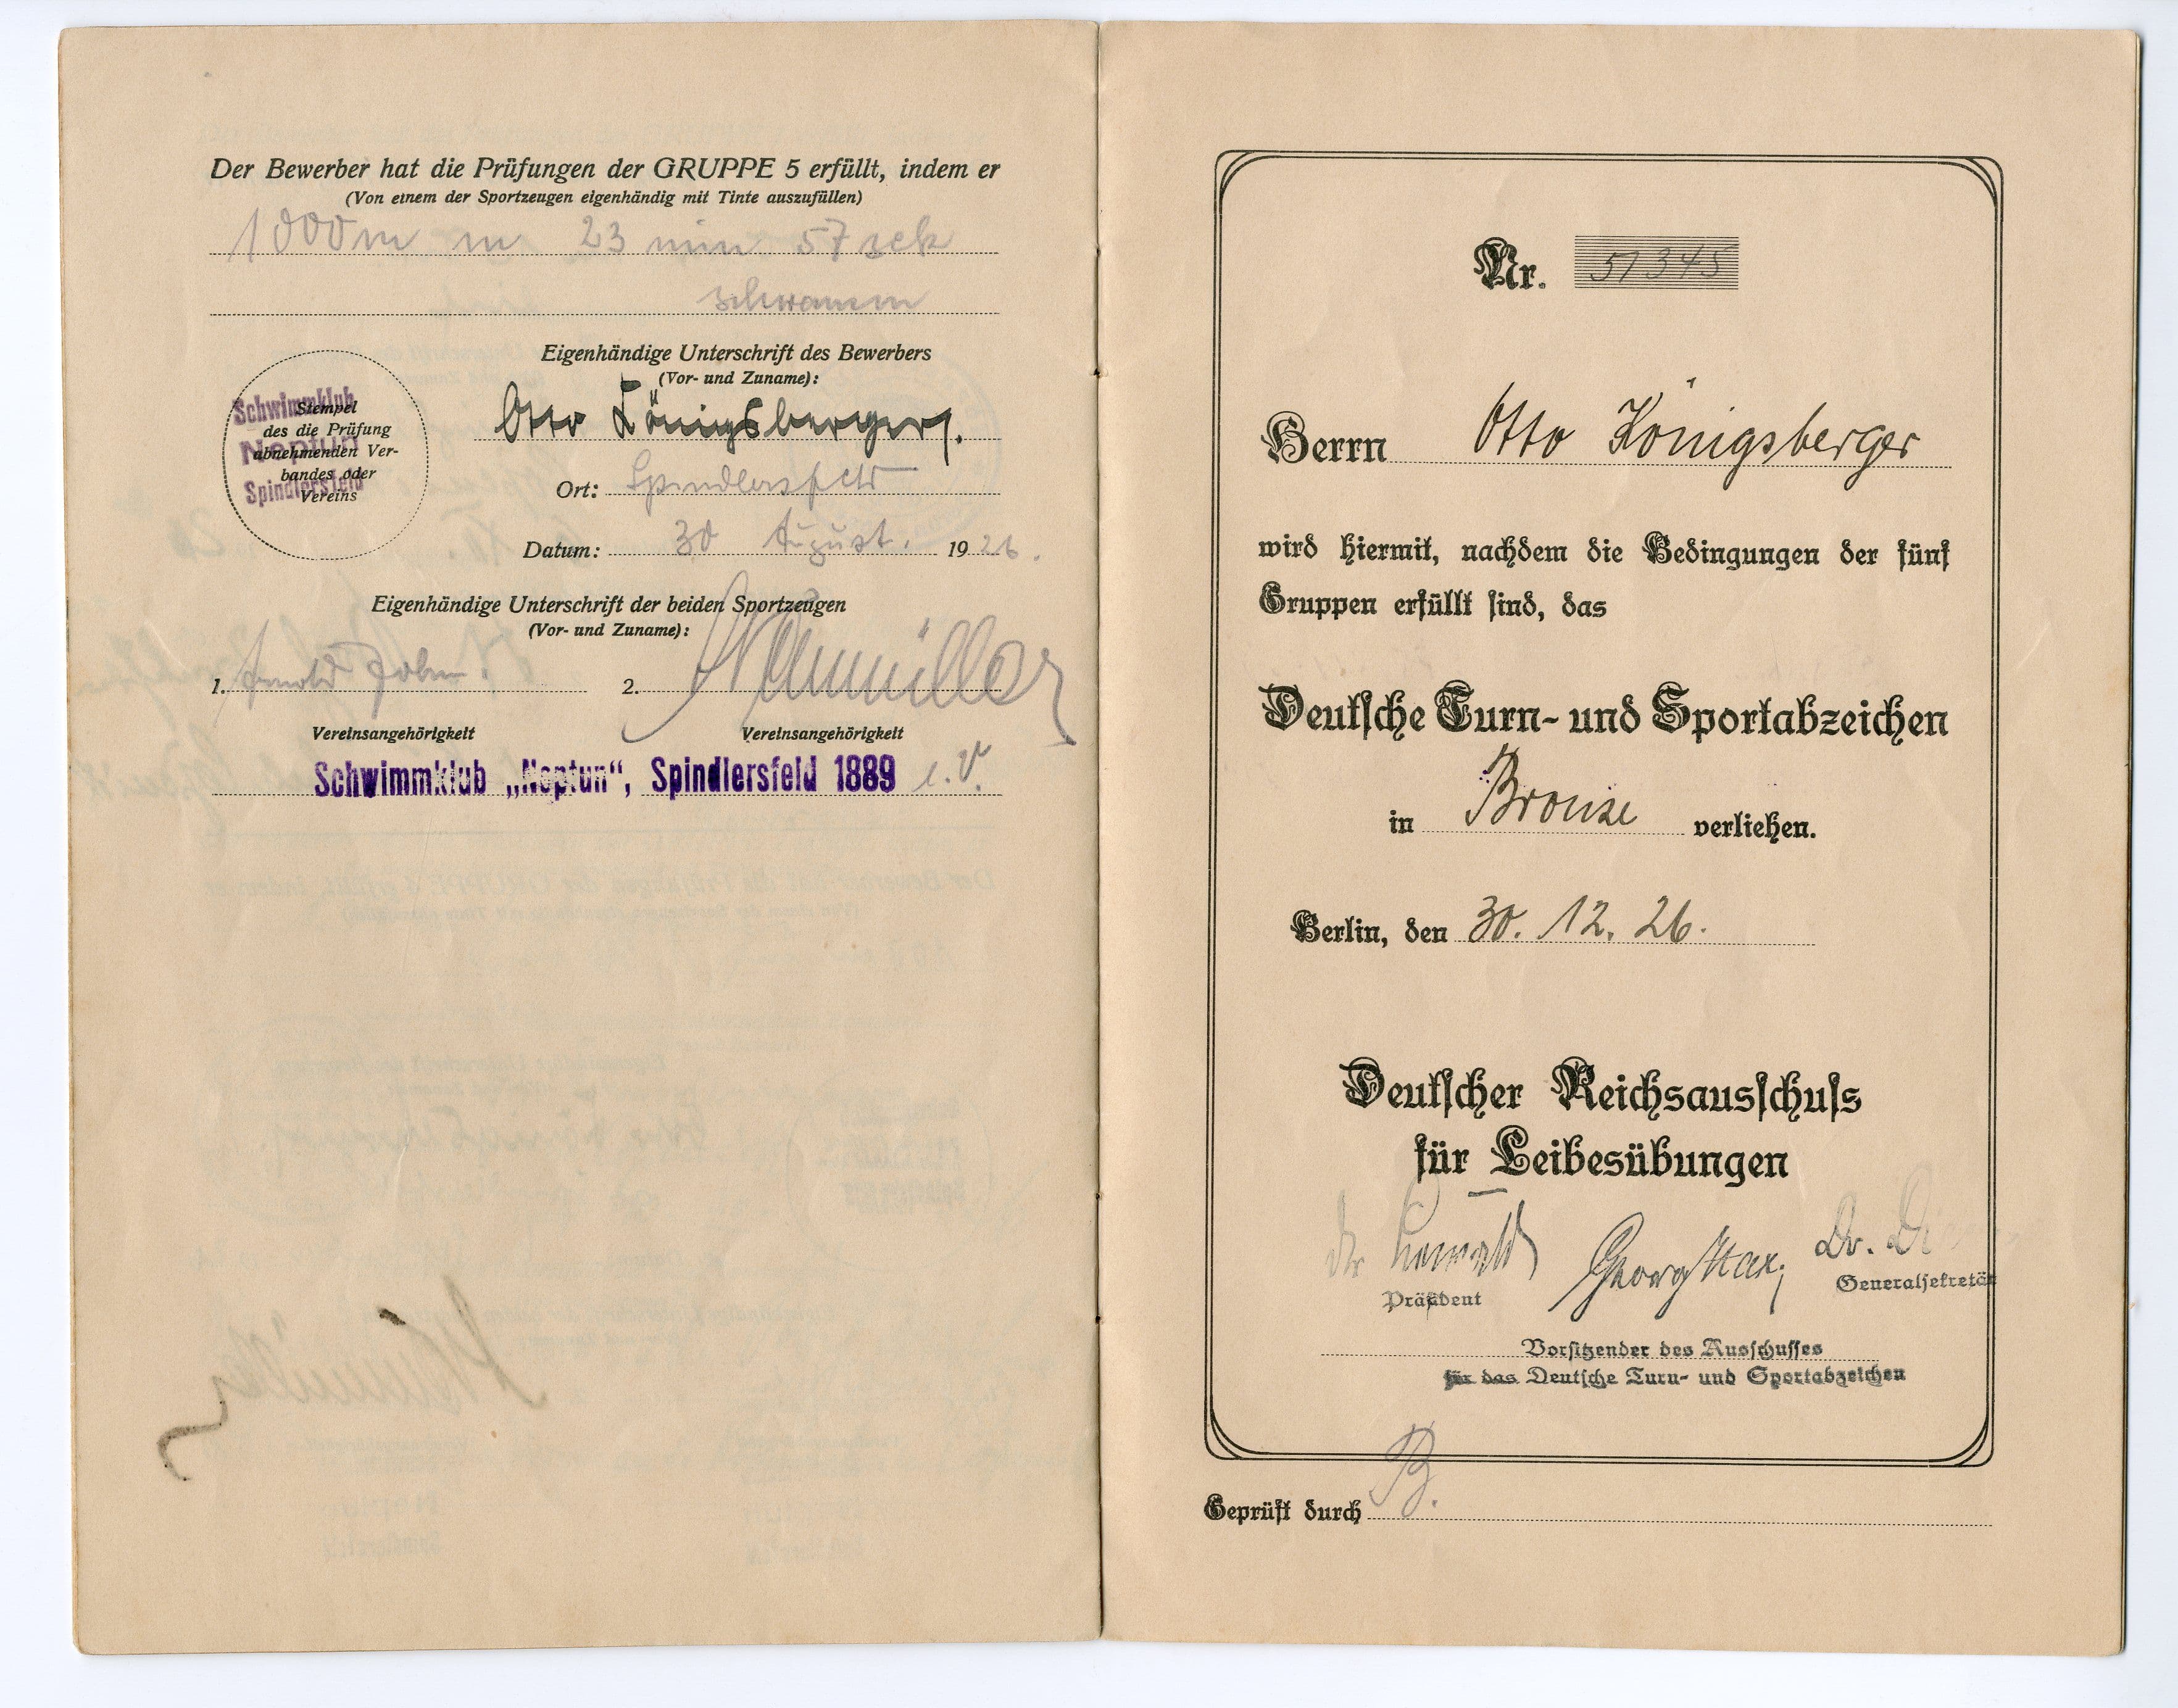 Der Bewerber hat die Prüfungen der GRUPPE 5 erfüllt, indem er
(Von einem der Sportzeugen eigenhändig mit Tinte auszufüllen)
1000 m in 23 min 57 sek
schwamm
Eigenhändige Unterschrift des Bewerbers
(Vor- und Zuname):
Otto Königsberger.
Schwimmklub
Neptun
Spindlersfeld
Stempel
des die Prüfung
abnehmenden Ver-
bandes oder
Vereins
Ort: Spindlersfeld
Datum: 30 August. 1926.
Eigenhändige Unterschrift der beiden Sportzeugen
(Vor- und Zuname):
1. Arnold 2.
Vereinsangehörigkeit Vereinsangehörigkeit
Schwimmklub „Neptun“, Spindlersfeld 1889 e.V.
Nr. 51345
Herrn Otto Königsberger
wird hiermit, nachdem die Bedingungen der fünf
Gruppen erfüllt sind, das
Deutsche Turn- und Sportabzeichen
in Bronze verliehen.
Berlin, den 30. 12. 26.
Deutscher Reichsausschuss
für Leibesübungen
Dr Lewald Georg Hax, Dr. Di
Präsident Generalsekretär
Vorsitzender des Ausschusses
für das Deutsche Turn- und Sportabzeichen
Geprüft durch B.